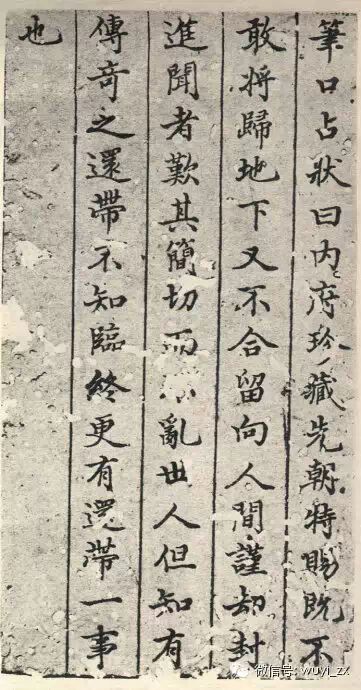 筆口占狀曰内府珍藏先朝特賜既不
敢将歸地下又不合留向人間謹却封
進聞者歎其簡切而不亂世人但知有
傳奇之還帶不知臨終更有還帶一事
也
微信号: wuyi_zx